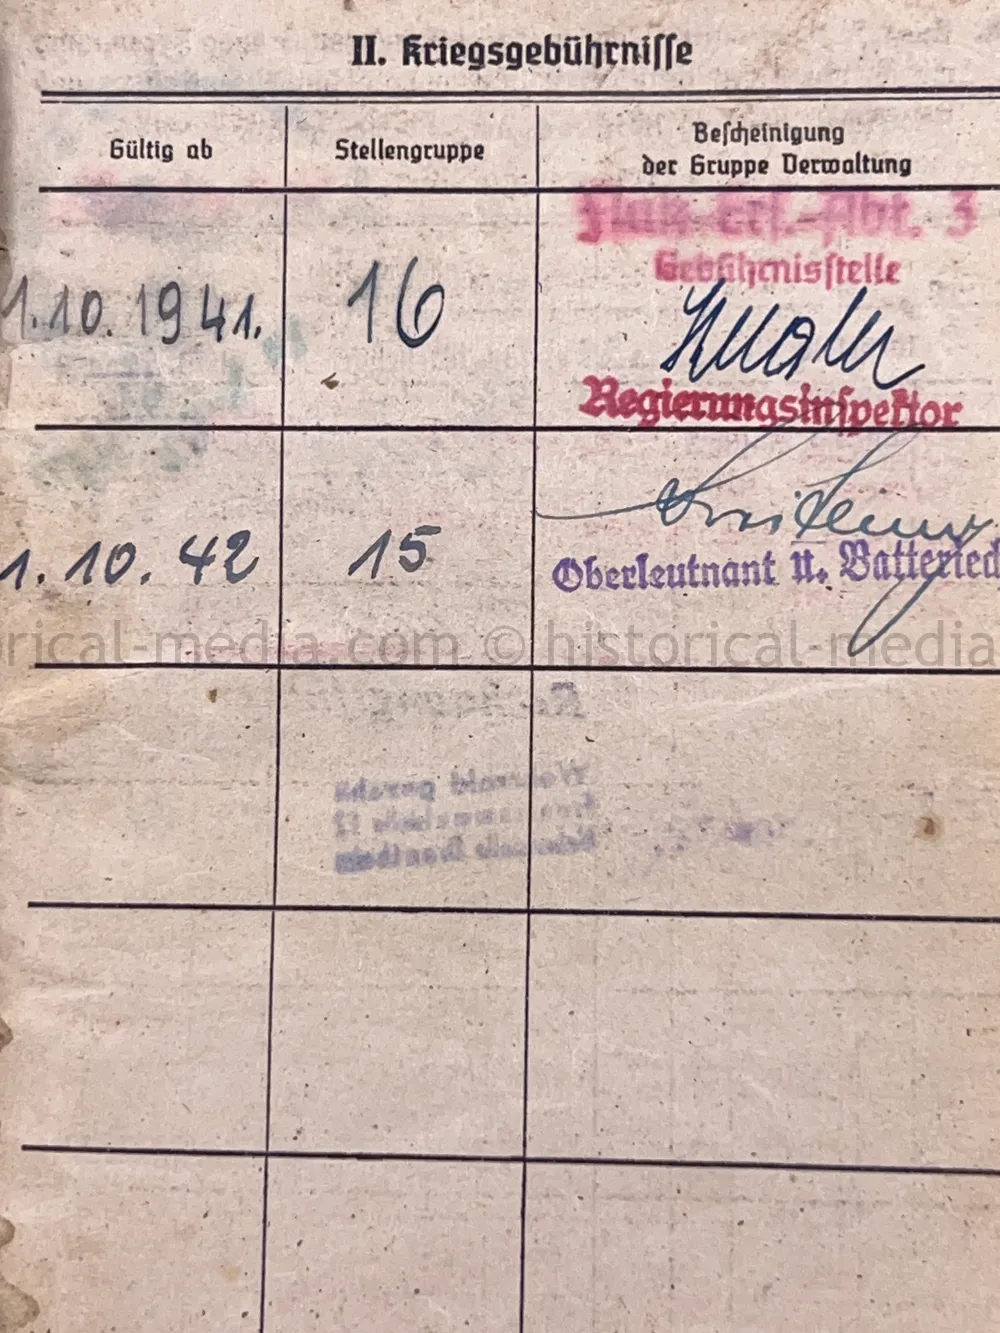 II. Kriegsgebührnisse
Gültig ab
Stellengruppe
Bescheinigung
der Gruppe Verwaltung
Flak-Ers.-Abt. 3
Gebührnisstelle
1.10.1941.
16
Regierungsinspektor
1.10.42
15
Oberleutnant u.
historical-media.com © historical-media